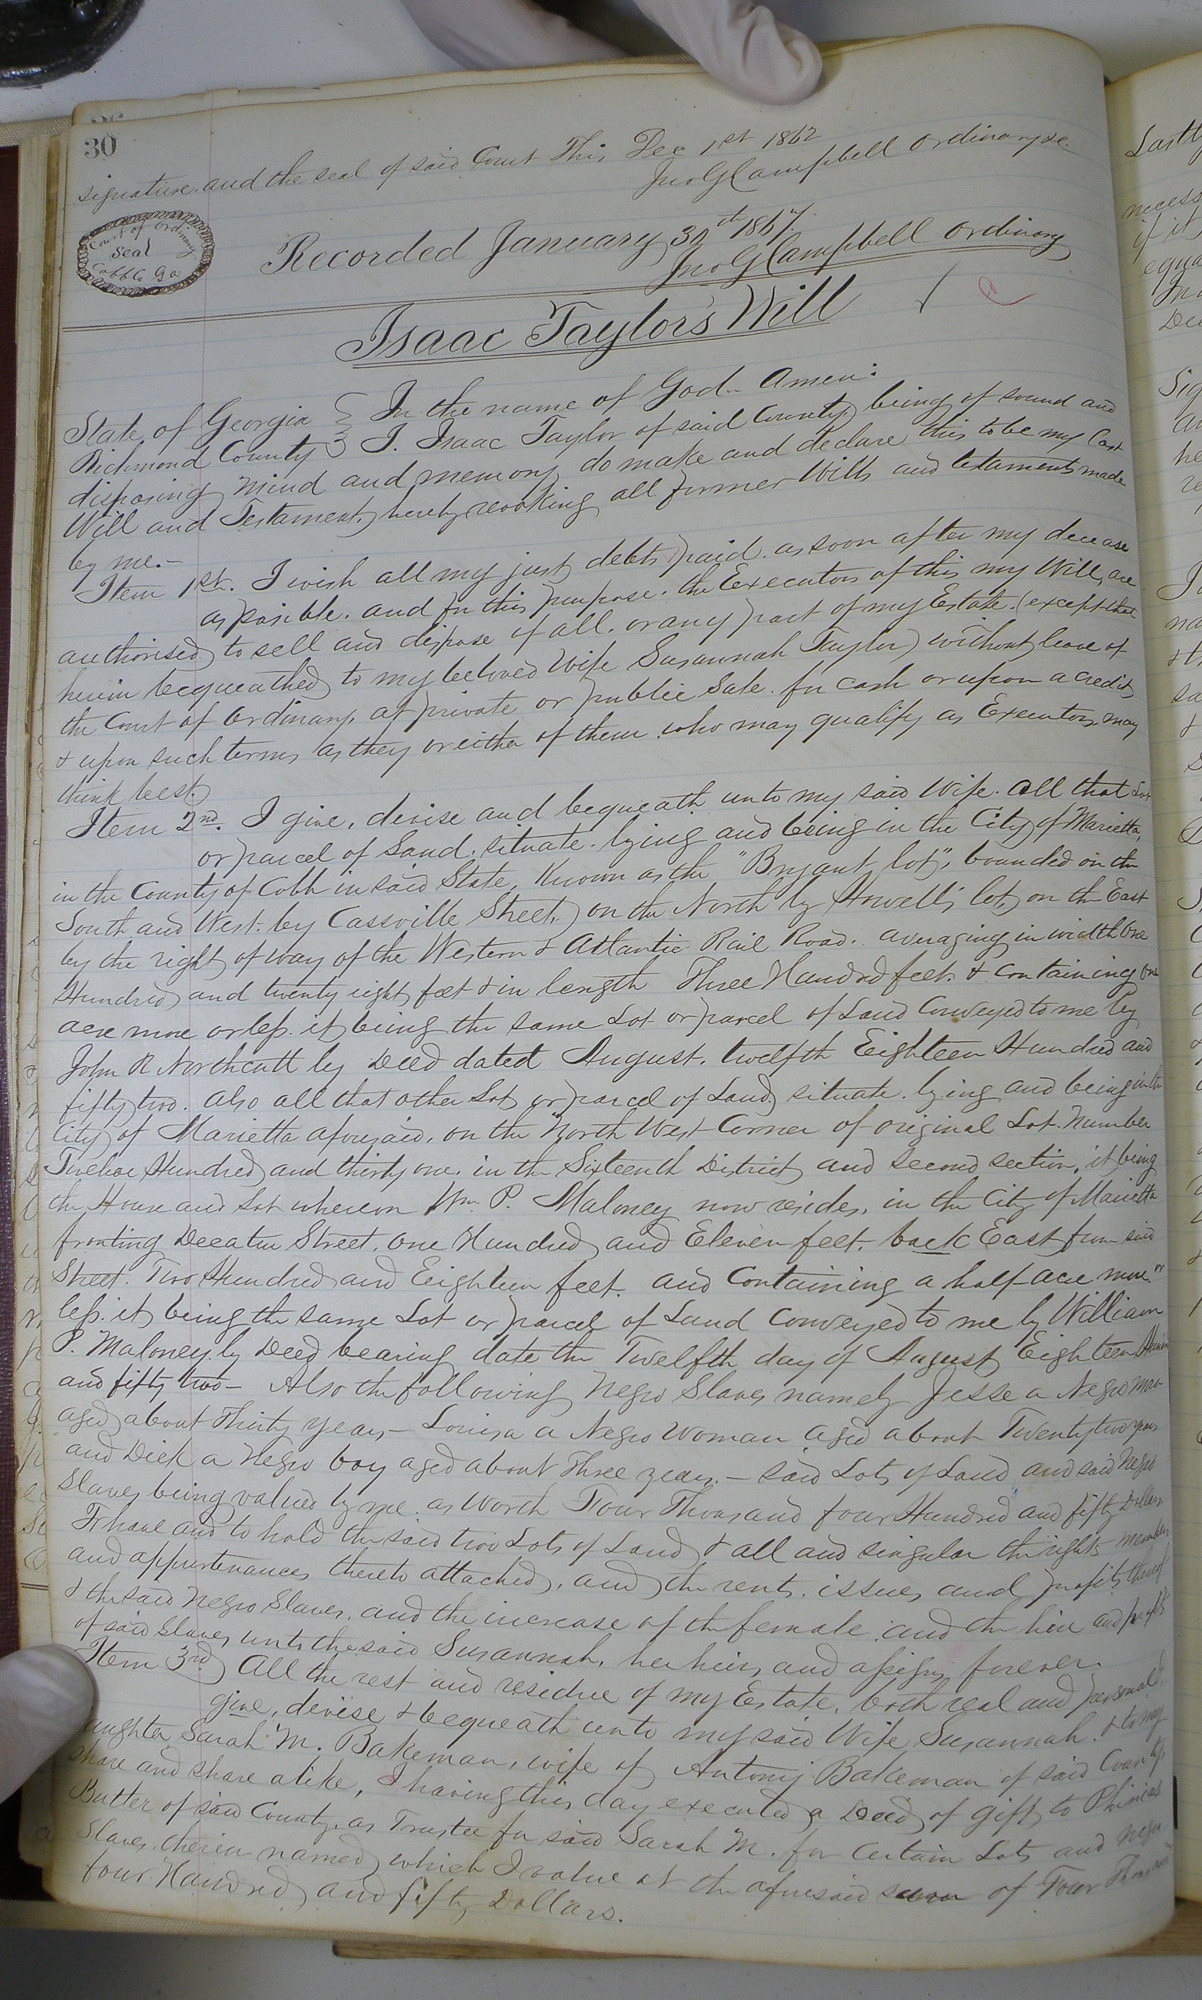 30
signature and the seal of said Court This Dec 1st 1862
Jno G Campbell Ordinary &c.
Court of Ordinary
Seal
Cobb Co Ga
Recorded January 30th 1867.
Jno G Campbell Ordinary
Isaac Taylor's Will
State of Georgia } In the name of God Amen:
Richmond County } I, Isaac Taylor of said County, being of sound and
disposing mind and memory do make and declare this to be my Last
Will and Testament, hereby revoking all former Wills and testaments made
by me.-
Item 1st. I wish all my just debts paid as soon after my decease
as possible. and for this purpose. the Executors of this my Will, are
authorised to sell and dispose of all. or any part of my Estate. (except that
herein bequeathed to my beloved Wife Susannah Taylor) without leave of
the Court of Ordinary, at private or public Sale. for cash or upon a credit
& upon such terms as they or either of them who may qualify as Executors may
think best.
Item 2nd. I give, devise and bequeath unto my said Wife. all that Lot
or parcel of Land, situate. lying and being in the City of Marietta,
in the County of Cobb in said State, Known as the "Bryant lot", bounded on the
South and West. by Cassville Street, on the North by Howell's lot, on the East
by the right of way of the Western & Atlantic Rail Road. averaging in width One
Hundred and twenty eight feet & in length Three Hundred feet & containing one
acre more or less. it being the same Lot or parcel of Land Conveyed to me by
John R Northcutt by Deed dated August, twelfth Eighteen Hundred and
fifty two. also all that other Lot or parcel of Land situate. lying and being in the
City of Marietta aforesaid. on the North West Corner of original Lot Number
Twelve Hundred and thirty one. in the Sixteenth District and second section, it being
the House and Lot whereon Wm P. Maloney now resides, in the City of Marietta
fronting Decatur Street. One Hundred and Eleven feet. back East from said
Street. Two Hundred and Eighteen feet. and Containing a half acre more or
less. it being the same Lot or parcel of Land Conveyed to me by William
P. Maloney by Deed bearing date the Twelfth day of August Eighteen Hundred
and fifty two - Also the following Negro Slaves namely Jesse a Negro man
aged about Thirty years - Louisa a Negro Woman aged about Twenty two years
and Dick a Negro boy aged about Three years. - said Lots of Land and said Negro
Slaves being valued by me as Worth Four Thousand four Hundred and fifty Dollars
To have and to hold the said two Lots of Land & all and singular the rights members
and appurtenances thereto attached, and the rents. issues, and profits thereof
& the said Negro Slaves, and the increase of the female and the hire and profits
of said Slaves unto the said Susannah, her heirs, and assigns forever.
Item 3rd All the rest and residue of my Estate, both real and personal, I
give, devise & bequeath unto my said Wife Susannah. & to my
daughter, Sarah M. Bakeman, wife of Antony Bakeman of said County
share and share alike, I having this day executed a Deed of gift to Phinias
Butler of said County, as Trustee for said Sarah M. for Certain Lots and negro
Slaves therein named, which I value at the aforesaid sum of Four Thousand
four Hundred and fifty Dollars.